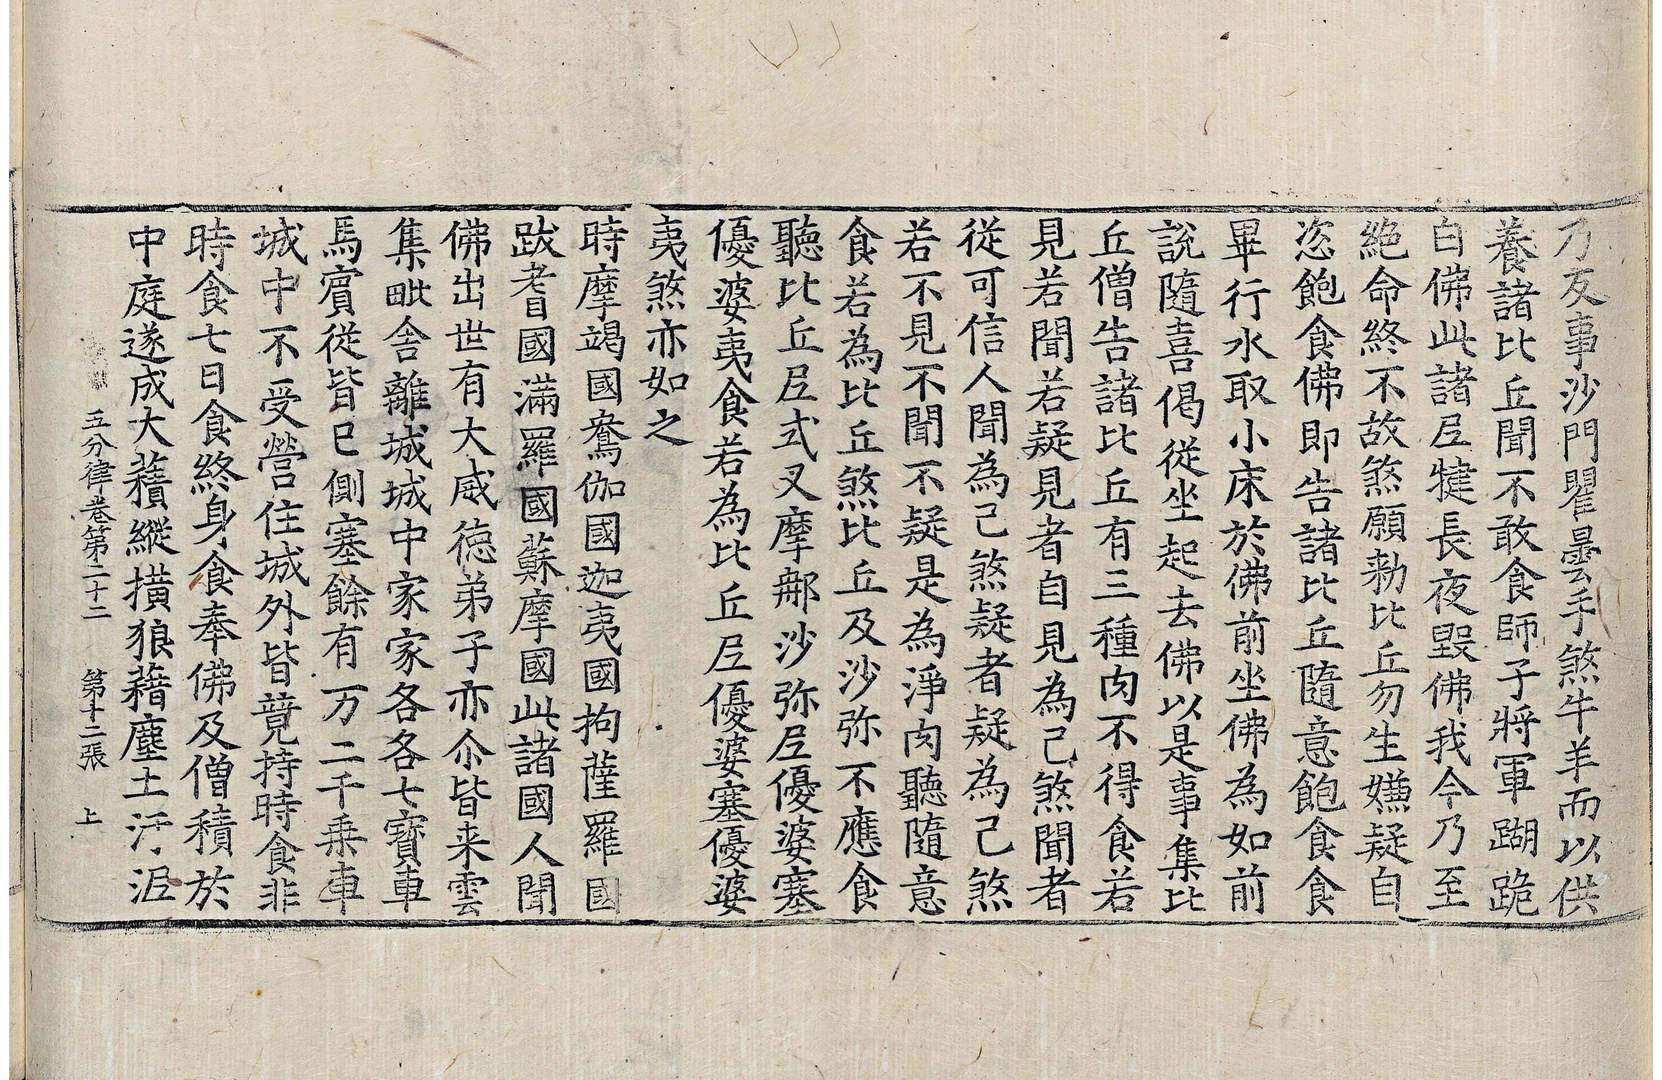 乃反事沙門瞿曇手煞牛羊而以供
養諸比丘聞不敢食師子將軍蹋跪
白佛此諸𡰱犍長夜毀佛我今乃至
絕命終不故煞願勑比丘勿生嫌疑自
恣飽食佛即告諸比丘隨意飽食食
畢行水取小床於佛前坐佛為如前
說隨喜偈從坐起去佛以是事集比
丘僧告諸比丘有三種肉不得食若
見若聞若疑見者自見為己煞聞者
從可信人聞為己煞疑者疑為己煞
若不見不聞不疑是為淨肉聽隨意
食若為比丘煞比丘及沙弥不應食
聽比丘𡰱式叉摩那沙弥𡰱優婆塞
優婆夷食若為比丘𡰱優婆塞優婆
夷煞亦如之
時摩竭國鴦伽國迦夷國拘薩羅國
跋耆國滿羅國蘇摩國此諸國人聞
佛出世有大威德弟子亦尒皆来雲
集毗舍離城城中家家各各七寶車
馬賓從皆已側塞餘有一万二千乗車
城中不受營住城外皆竟持時食非
時食七日食終身食奉佛及僧積於
中庭遂成大𧂐縱撗狼藉塵土汙泥
五分律卷第二十二 第十二張 上